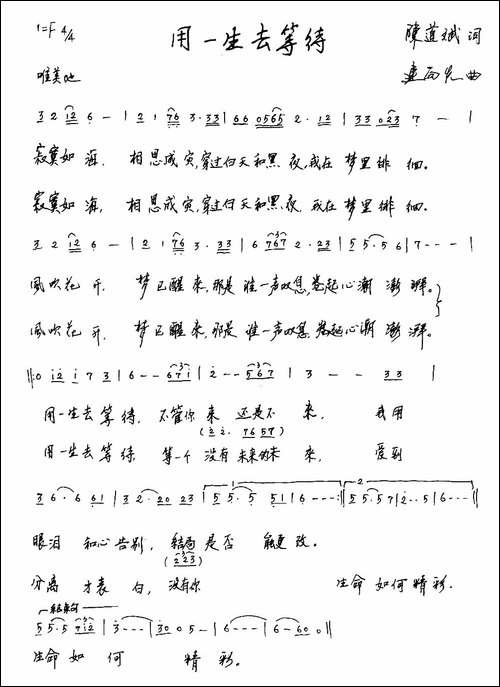 1=F 4/4 用一生去等待 陳道斌 词
唯美地 曲
3 2 12 6 - | 2 1 76 3·33 | 66 0565 2·12 | 33 023 7 - |
寂寞如海，相思成灾，穿过白天和黑夜，我在梦里徘徊。
寂寞如海，相思成灾，穿过白天和黑夜，我在梦里徘徊。
3 2 12 6 - | 2 1 76 3·33 | 6 767 2·23 | 55·56 | 7--- |
風吹花开，梦已醒来，那是谁一声叹息，卷起心潮澎湃。
風吹花开，梦已醒来，那是谁一声叹息，卷起心潮澎湃。
||:0 i2 i 7 3 | 6 -- 671 | 2 -- 567 | 3 -- 33 |
用一生去等待，不管你来还是不来，我用
(22· 76 57)
用一生去等待 等一个没有未来的未来，爱到
3 6·6 61 | 32·20 23 | 55·5 51 | 6---:|| 55·57 | 2··5 | 6--- |
眼泪和心告别，结局是否能更改。
(223)
分离才表白，没有你 生命如何精彩。
结束句
55·5 712 | 3--- | 30 05 - | 6--- | 6-60 0 ||
生命如何精彩。